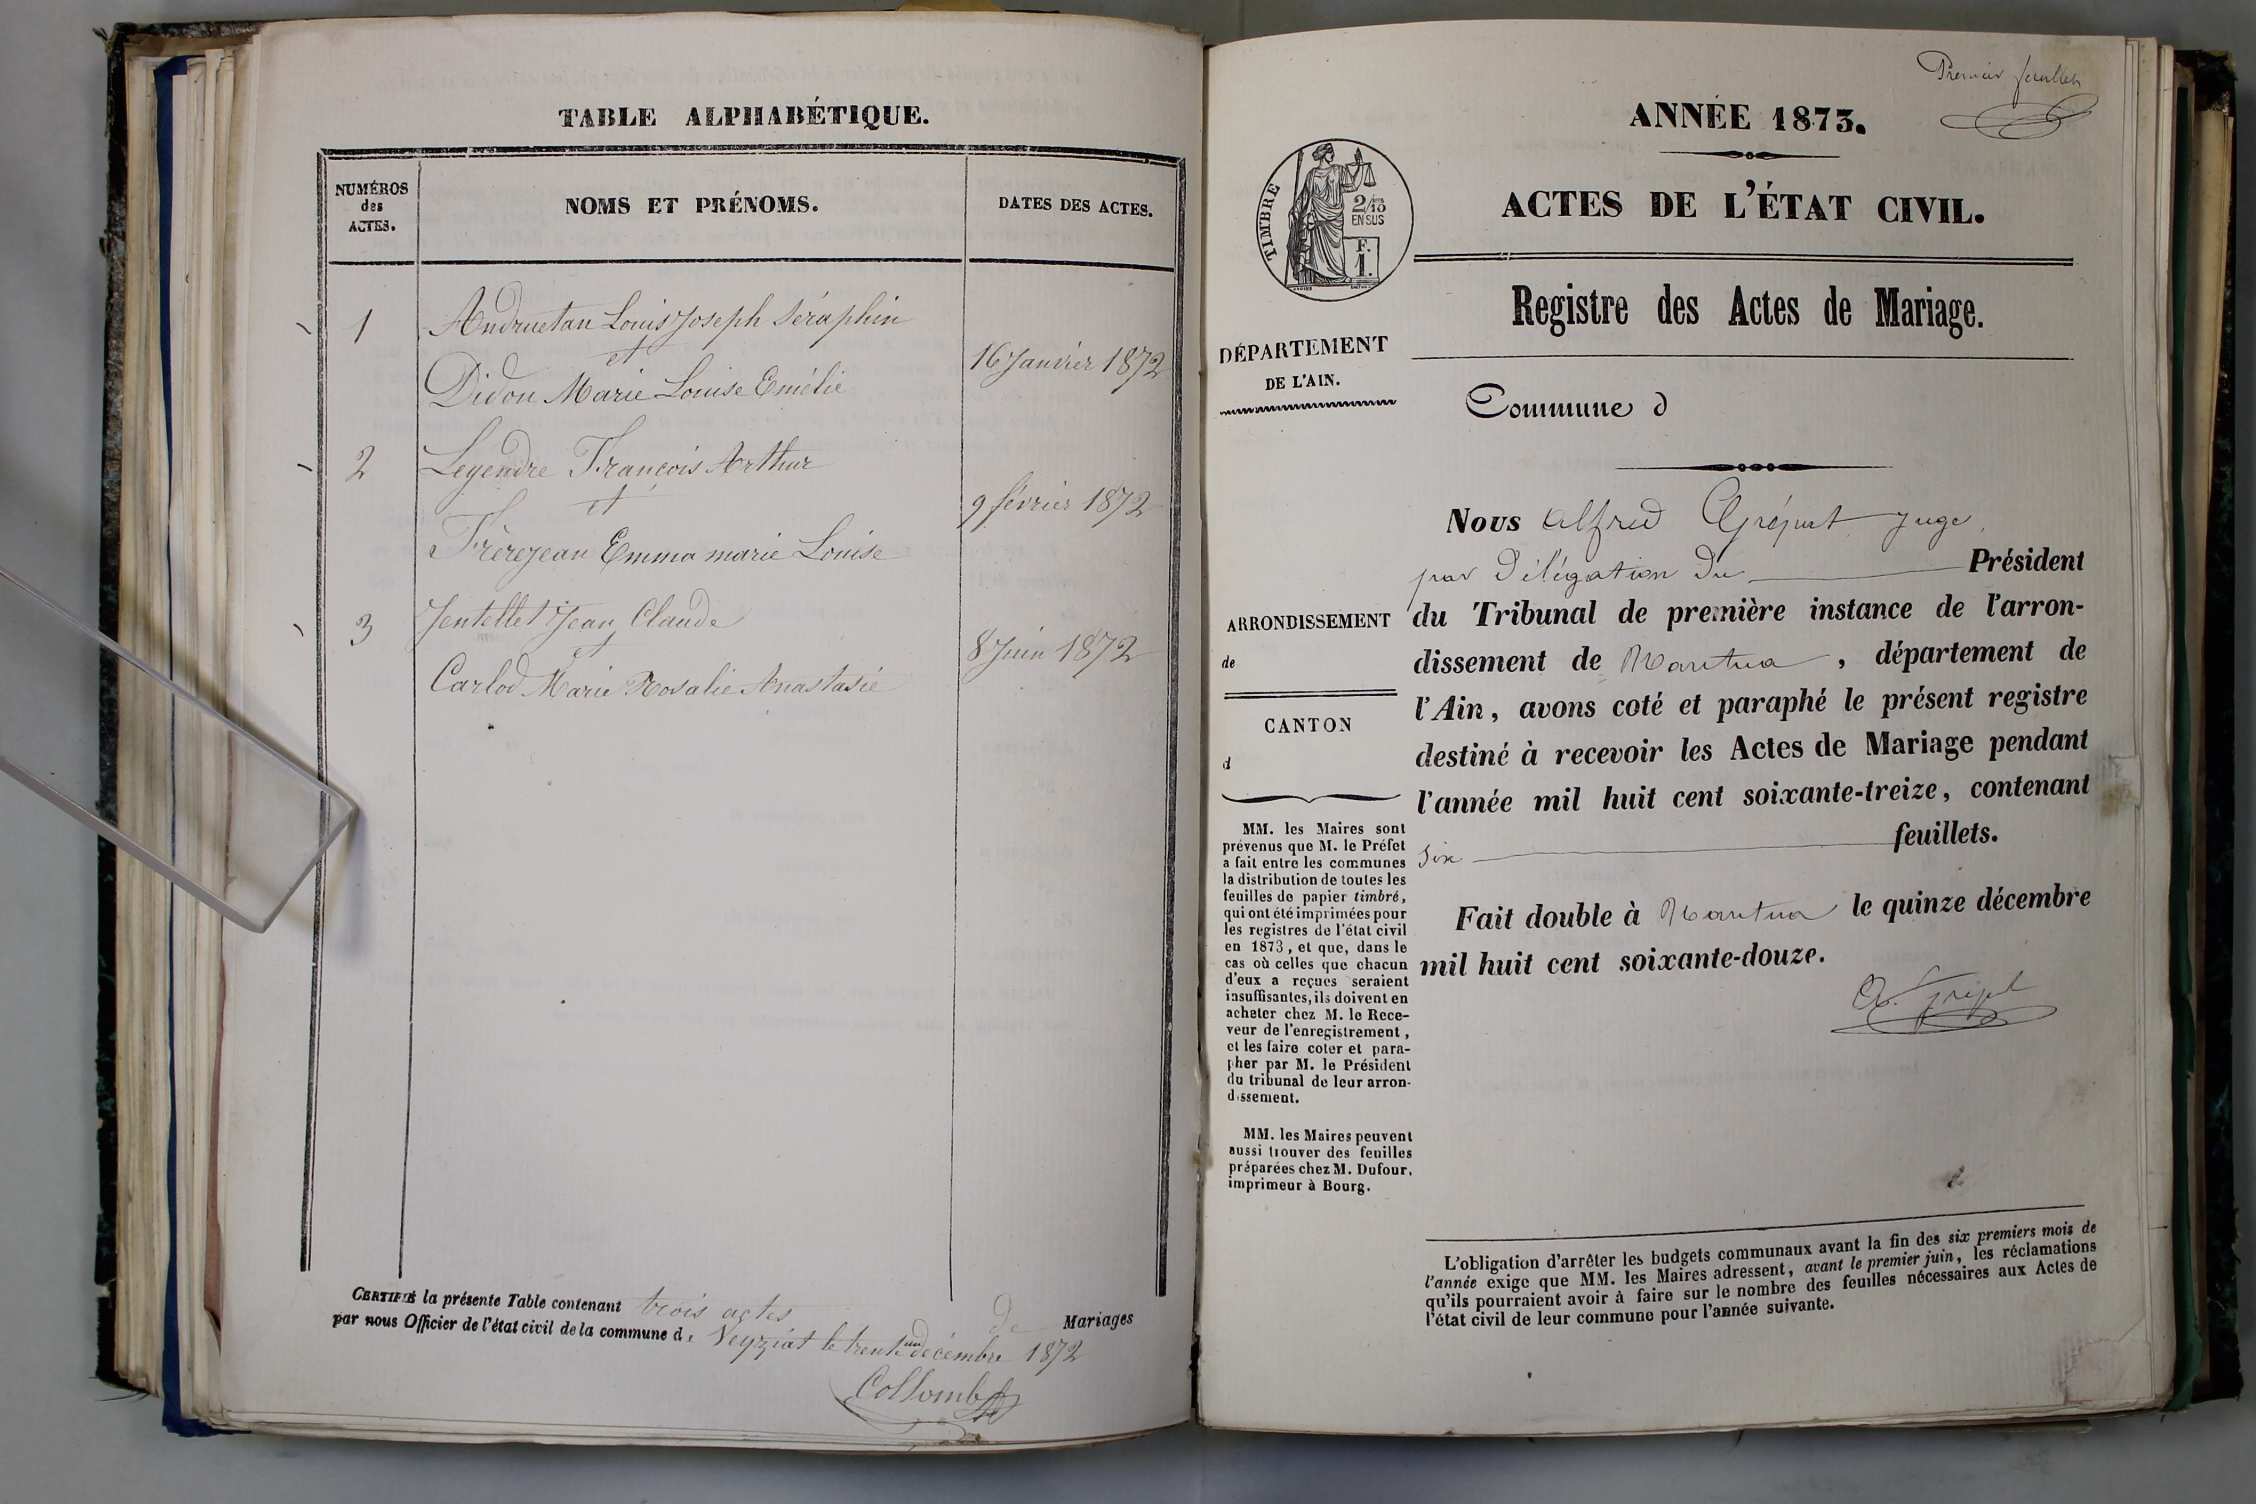 TABLE ALPHABÉTIQUE.
NUMÉROS
des
ACTES.
NOMS ET PRÉNOMS.
DATES DES ACTES.
1
Andruetan Louis Joseph Séraphin
et
Didon Marie Louise Emélie
16 Janvier 1872
2
Legendre François Arthur
et
Frèrejean Emma marie Louise
9 février 1872
3
Jentellet Jean Claude
et
Carlod Marie Rosalie Anastasie
8 Juin 1872
CERTIFIÉ la présente Table contenant trois actes de Mariages
par nous Officier de l'état civil de la commune de Veyziat le trente un décembre 1872
Collomb
Premier feuillet
ANNÉE 1873.
ACTES DE L'ÉTAT CIVIL.
TIMBRE
2/10
EN SUS
F.
1.
Registre des Actes de Mariage.
DÉPARTEMENT
DE L'AIN.
Commune d
ARRONDISSEMENT
de
CANTON
d
MM. les Maires sont
prévenus que M. le Préfet
a fait entre les communes
la distribution de toutes les
feuilles de papier timbré,
qui ont été imprimées pour
les registres de l'état civil
en 1873, et que, dans le
cas où celles que chacun
d'eux a reçues seraient
insuffisantes, ils doivent en
acheter chez M. le Rece-
veur de l'enregistrement,
et les faire coter et para-
pher par M. le Président
du tribunal de leur arron-
dissement.
MM. les Maires peuvent
aussi trouver des feuilles
préparées chez M. Dufour,
imprimeur à Bourg.
Nous Alfred juge
par délégation du Président
du Tribunal de première instance de l'arron-
dissement de Nantua, département de
l'Ain, avons coté et paraphé le présent registre
destiné à recevoir les Actes de Mariage pendant
l'année mil huit cent soixante-treize, contenant
six feuillets.
Fait double à Nantua le quinze décembre
mil huit cent soixante-douze.
L'obligation d'arrêter les budgets communaux avant la fin des six premiers mois de
l'année exige que MM. les Maires adressent, avant le premier juin, les réclamations
qu'ils pourraient avoir à faire sur le nombre des feuilles nécessaires aux Actes de
l'état civil de leur commune pour l'année suivante.